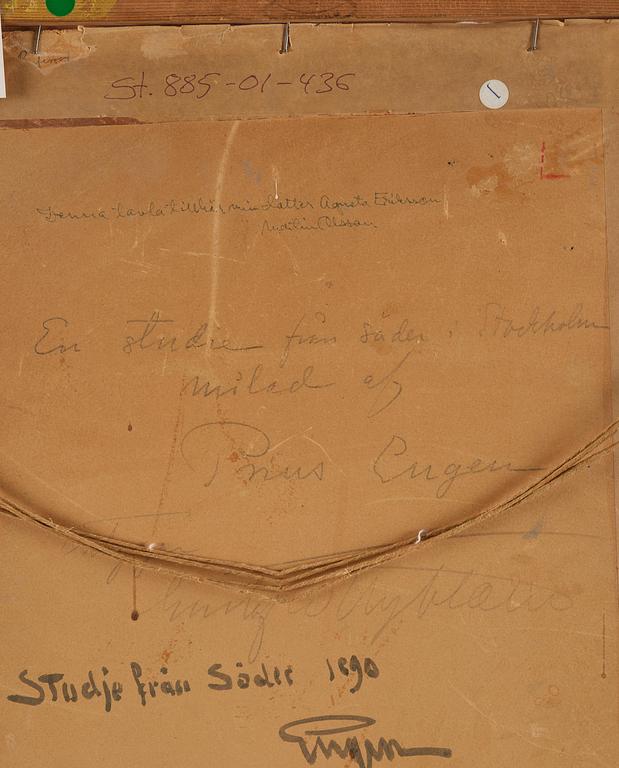 St. 885-01-436
1
Denna tavla tillhör min dotter Agneta Eriksson
Olsson
En studie från söder i Stockholm
målad af
Prins Eugen
Studje från Söder 1890
Eugen